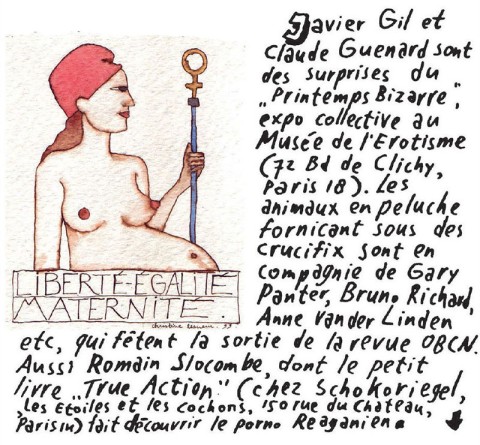 Javier Gil et
Claude Guenard sont
des surprises du
„Printemps Bizarre",
expo collective au
Musée de l'Erotisme
(72 Bd de Clichy,
Paris 18). Les
animaux en peluche
fornicant sous des
crucifix sont en
compagnie de Gary
Panter, Bruno Richard,
Anne Vander Linden
etc, qui fêtent la sortie de la revue OBCN.
Aussi Romain Slocombe, dont le petit
livre „True Action" (chez Schokoriegel,
Les Etoiles et les cochons, 150 rue du Chateau,
Paris 14) fait découvrir le porno Reaganien.
LIBERTÉ-ÉGALITÉ
MATERNITÉ
christine